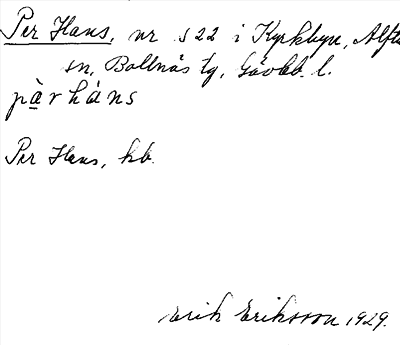 Per Hans, nr 522 i Kyrkbyn, Alfta
sn, Bollnäs tg, Gävleb. l.
pàrháns
Per Hans, kb.
Erik Eriksson 1929.